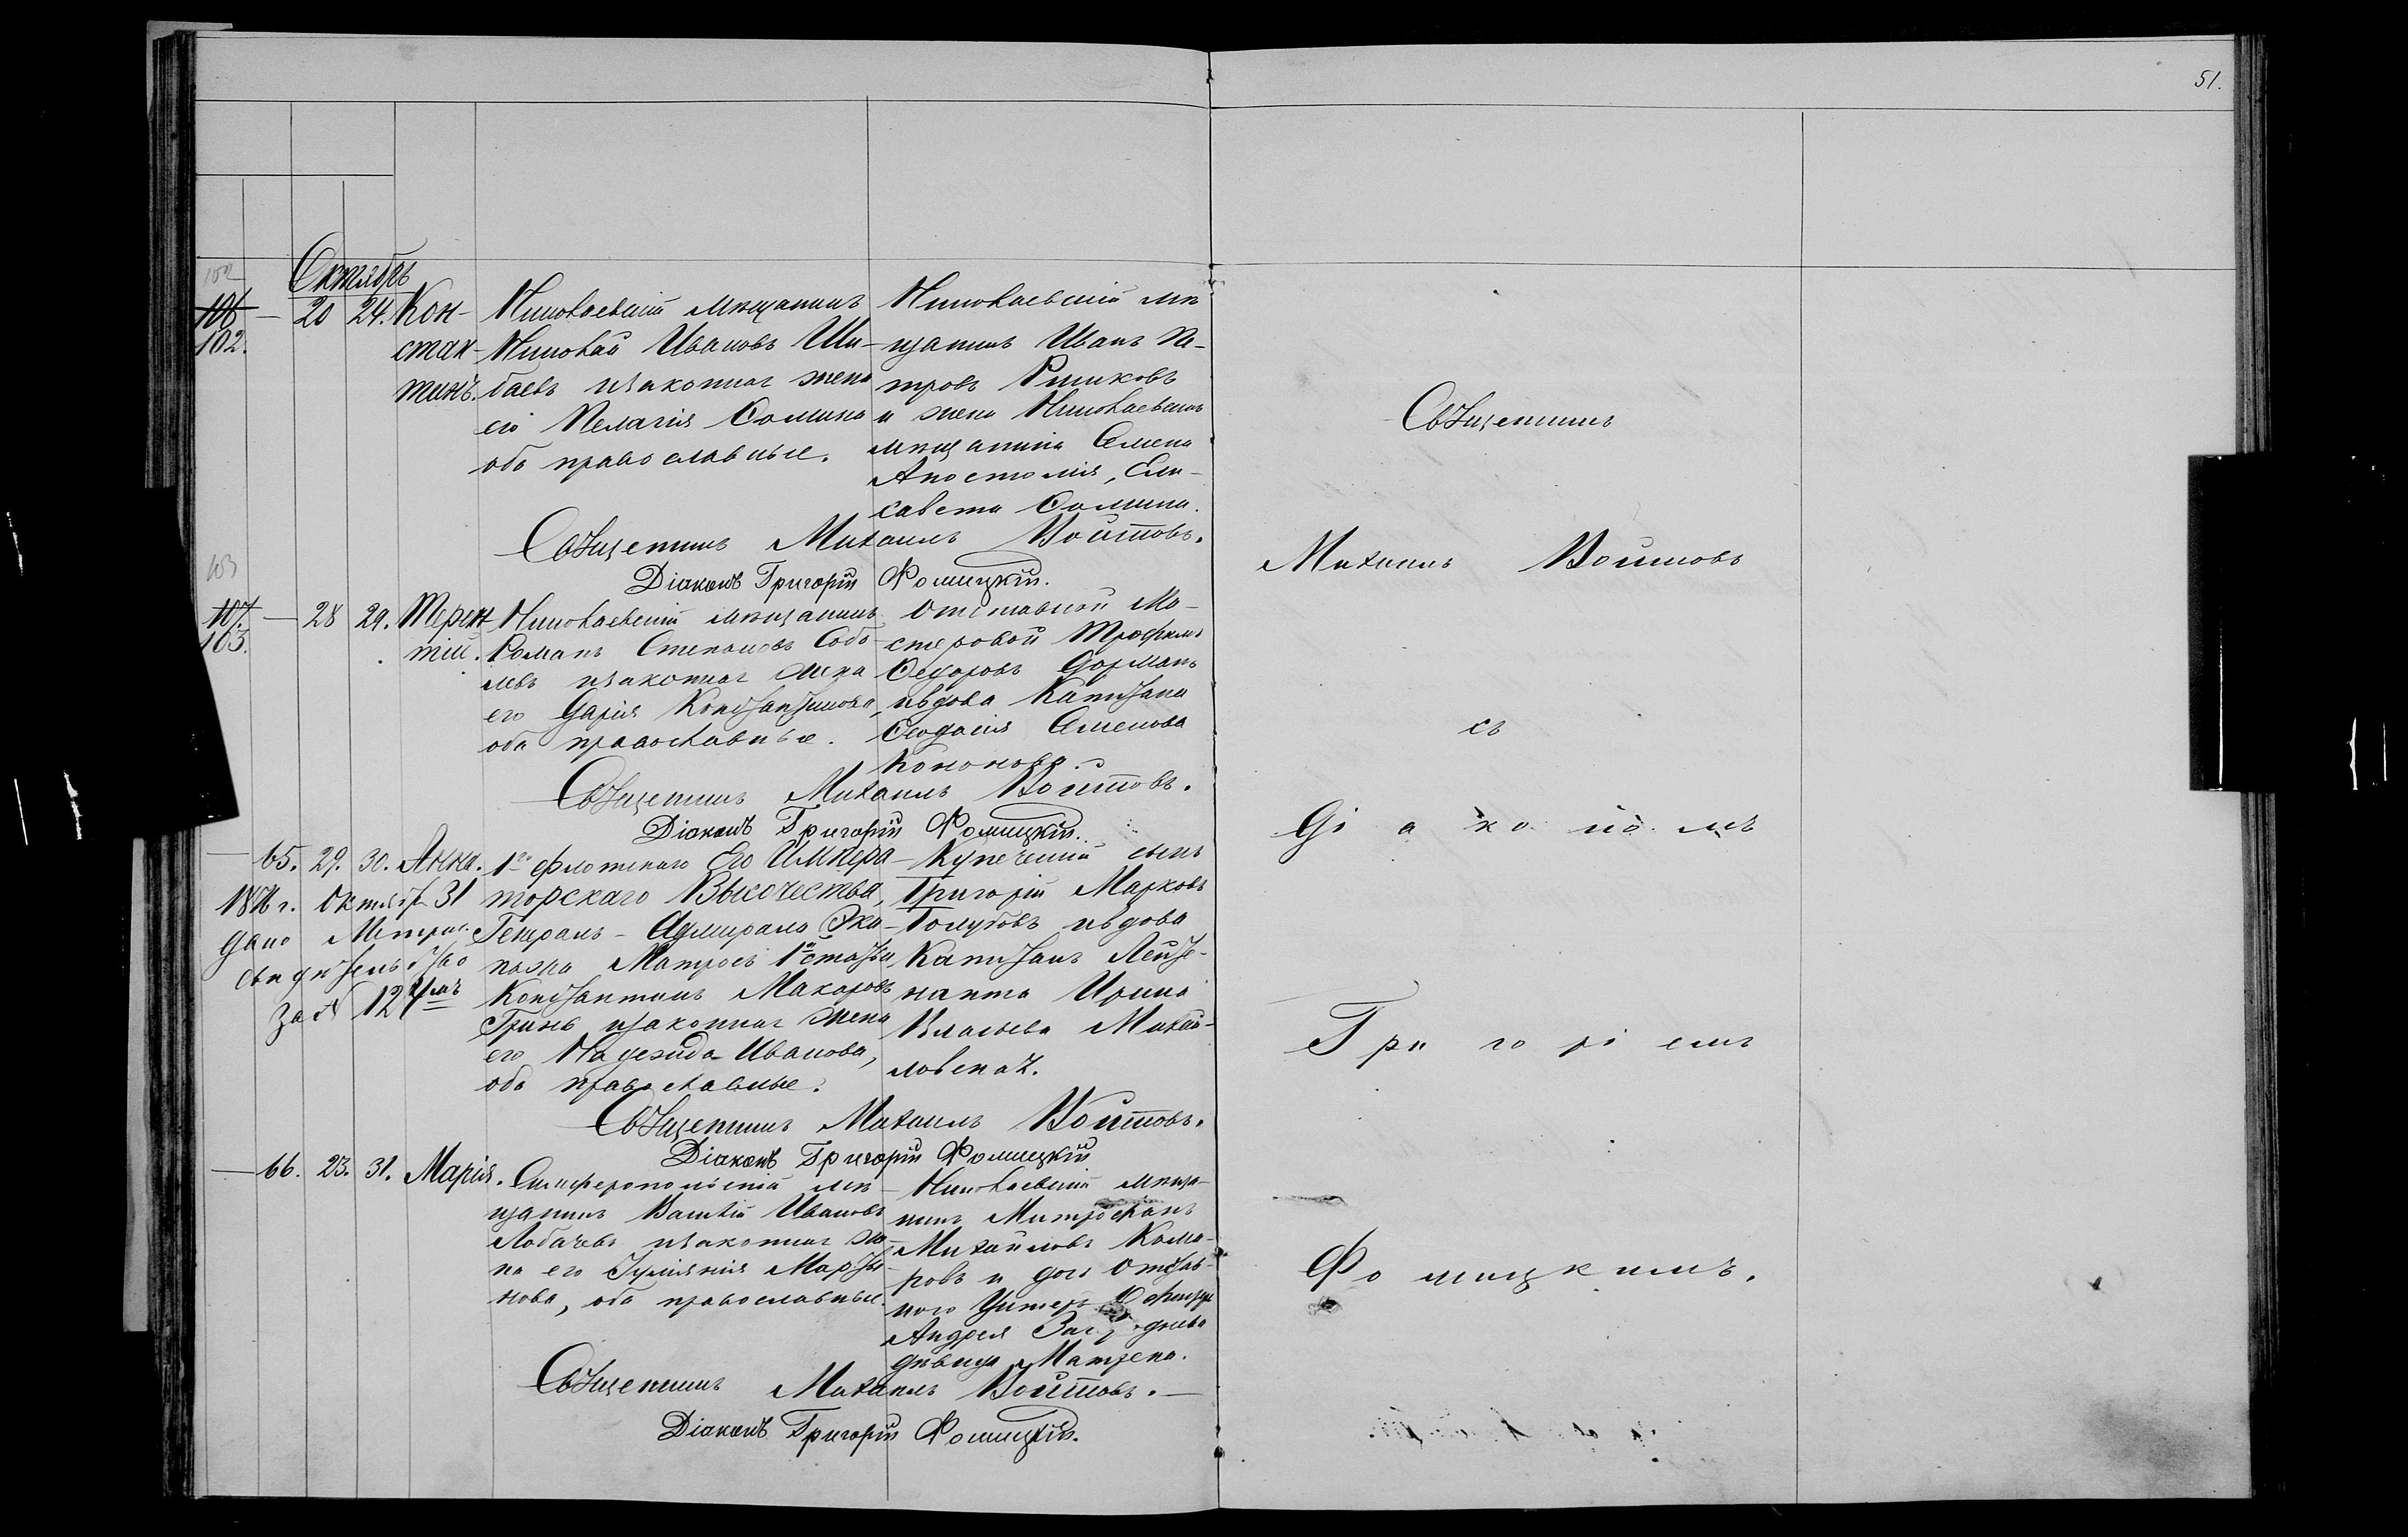 51.
Октябрь
102
106
102.
20 24. Кон-
стан-
тинъ.
Николаевскій мѣщанинъ
Николай Ивановъ Ши-
баевъ и законная жена
его Пелагія Ѳомина
оба православные.
Николаевскій мѣ
щанинъ Иванъ Пе-
тровъ
и жена Николаевскаго
мѣщанина Семена
Апостолія, Ели-
савета Ѳомина.
Священникъ Михаилъ Войтовъ.
Діаконъ Григорій Фомицкій.
103
107.
103.
28 29. Терен
тій.
Николаевскій мѣщанинъ
Романъ Степановъ Собо
левъ и законная жена
его Дарія Константинова,
оба православные.
Отставной Ма-
стеровой Трофимъ
Ѳедоровъ Дорманъ
и вдова Капитана
Ѳеодосія Семенова
Кононова.
Священникъ Михаилъ Войтовъ.
Діаконъ Григорій Фомицкій.
65. 29. 30. Анна.
1876 г. Октября 31
дано Метрич.
свидѣтельство
за № 124мъ
1го Флотскаго Его Импера-
торскаго Высочества,
Генералъ-Адмирала Эки-
пажа Матросъ 1й статьи
Константинъ Макаровъ
Гринь и законная жена
его Надежда Иванова,
оба православные.
Купеческій сынъ
Григорій Марковъ
Голубовъ и вдова
Капитанъ Лейте-
нанта Ирина
Власьева Михай-
ловская.
Священникъ Михаилъ Войтовъ.
Діаконъ Григорій Фомицкій
66. 23. 31. Марія.
Симферопольскій мѣ-
щанинъ Василій Ивановъ
Лобачевъ и законная же-
на его Іуліянія Марты-
нова, оба православные.
Николаевскій мѣща-
нинъ Митрофанъ
Михайловъ Кома-
ровъ и дочь отстав-
ного Унтеръ Офицера
Андрея
дѣвица Матрена.
Священникъ Михаилъ Войтовъ.
Діаконъ Григорій Фомицкій.
Священникъ
Михаилъ Войтовъ
съ
Ді а ко но мъ
Гри го рі емъ
Фо мицкимъ.